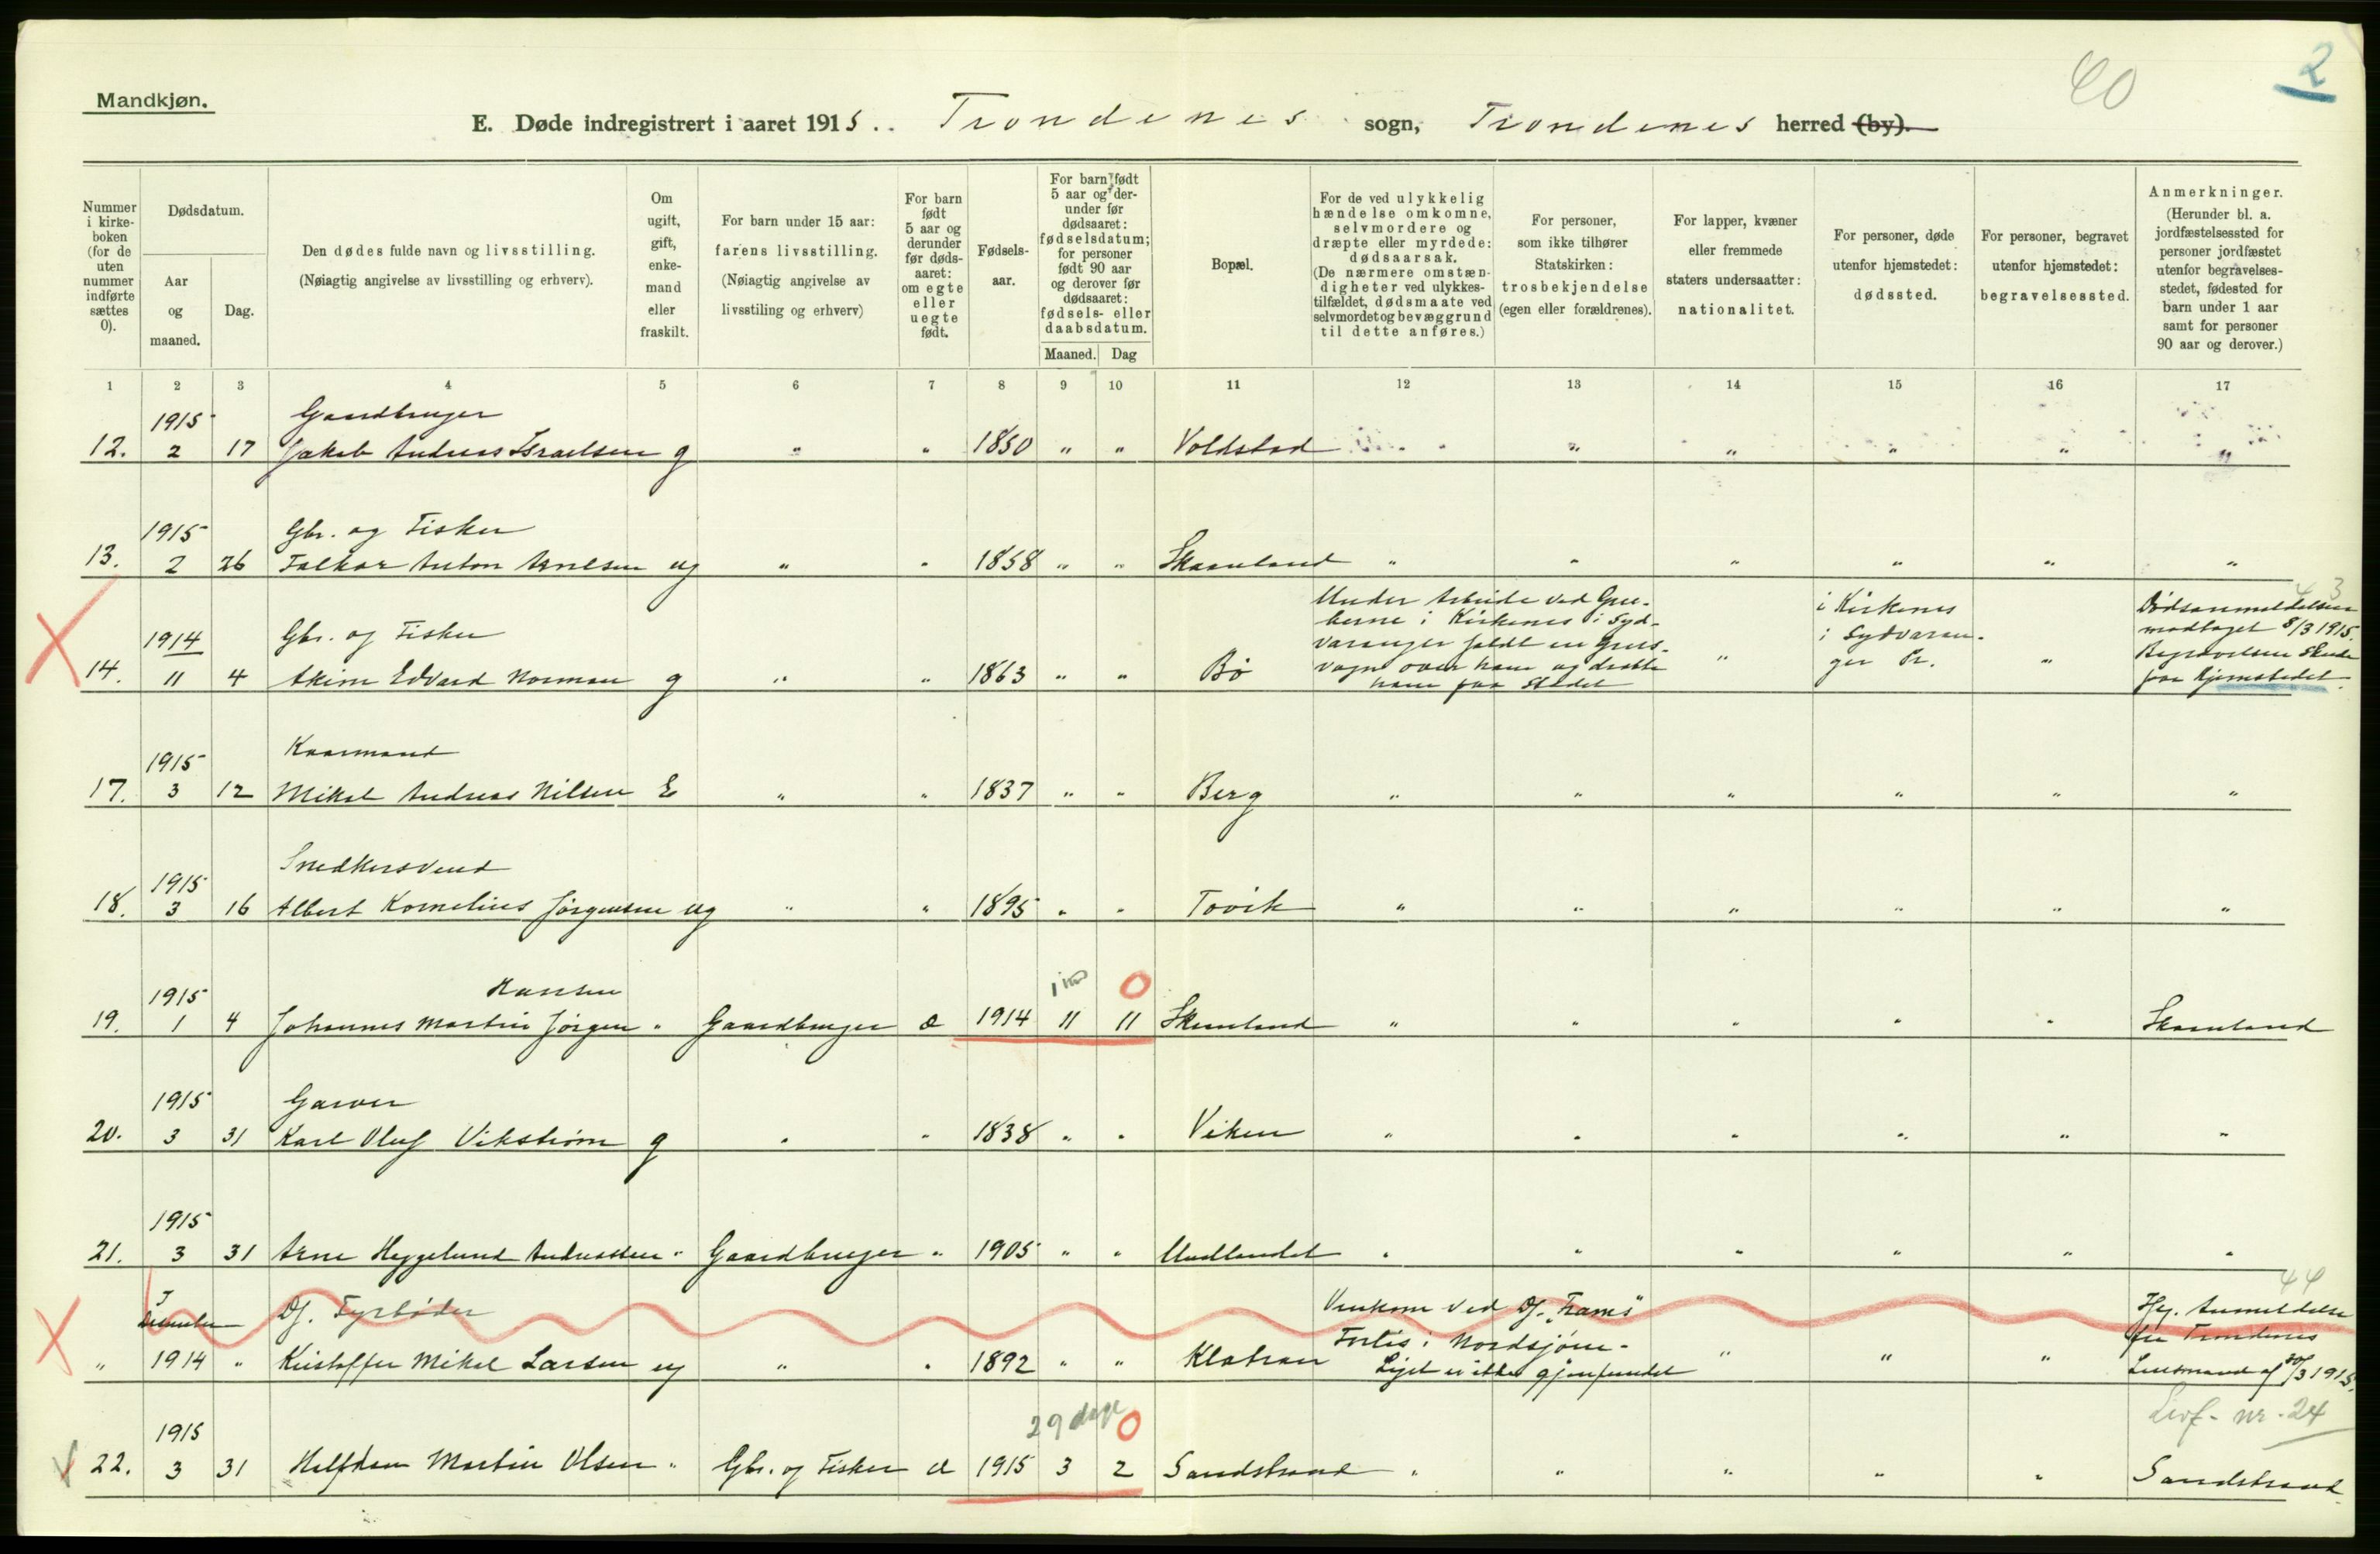 40
2
Mandkjøn.
E. Døde indregistrert i aaret 1915. Trondenes sogn, Trondenes herred (by).
Nummer i kirkeboken (for de uten nummer indførte sættes 0).
Dødsdatum.
Aar og maaned.
Dag.
Den dødes fulde navn og livsstilling.
(Nøiagtig angivelse av livsstilling og erhverv).
Om ugift, gift, enkemand eller fraskilt.
For barn under 15 aar: farens livsstilling.
(Nøiagtig angivelse av livsstiling og erhverv)
For barn født 5 aar og derunder før dødsaaret: om egte eller uegte født.
Fødselsaar.
For barn født 5 aar og derunder før dødsaaret: fødselsdatum; for personer født 90 aar og derover før dødsaaret: fødsels- eller daabsdatum.
Maaned. Dag
Bopæl.
For de ved ulykkelig hændelse omkomne, selvmordere og dræpte eller myrdede: dødsaarsak.
(De nærmere omstændigheter ved ulykkestilfældet, dødsmaate ved selvmordet og bevæggrund til dette anføres.)
For personer, som ikke tilhører Statskirken: trosbekjendelse (egen eller forældrenes).
For lapper, kvæner eller fremmede staters undersaatter: nationalitet.
For personer, døde utenfor hjemstedet: dødssted.
For personer, begravet utenfor hjemstedet: begravelsessted.
Anmerkninger.
(Herunder bl. a. jordfæstelsessted for personer jordfæstet utenfor begravelsesstedet, fødested for barn under 1 aar samt for personer 90 aar og derover.)
1 2 3 4 5 6 7 8 9 10 11 12 13 14 15 16 17
1915 Gaardbruger
12. 2 17 Jakob Andreas Israelsen g " " 1850 " " Voldstad " " " " " "
1915 Gbr. og Fisker
13. 2 26 Falkor Anton Arnesen ug " " 1858 " " Skaanland " " " " " "
43
1914 Gbr. og Fisker
14. 11 4 Akim Edvard Norman g " " 1863 " " Bø
Under Arbeide ved Gruberne i Kirkenes i Sydvaranger faldt en grusvogn over ham og dræbte ham paa Stedet
"
i Kirkenes i Sydvaranger Pr.
"
Dødsanmeldelsen modtaget 8/3 1915. Begravelsen skede paa Hjemstedet.
1915 Kaarmand
17. 3 12 Mikal Andreas Nilsen E " " 1837 " " Berg " " " " " "
1915 Snedkersvend
18. 3 16 Albert Kornelius Jørgensen ug " " 1895 " " Tovik " " " " " "
1915 Hansen 0
19. 1 4 Johannes Martin Jørgen " Gaardbruger æ 1914 11 11 Skaanland " " " " " Skaanland
1915 Garver
20. 3 31 Karl Oluf Vikstrøm g " " 1838 " " Viken " " " " " "
1915
21. 3 31 Arne Heggelund Andreassen " Gaardbruger " 1905 " " Undlandet " " " " " "
44
I December Df. Fyrbøder
" 1914 " Kristoffer Mikal Larsen ug " " 1892 " " Klatran
Omkom ved Df. "Frams" Forlis i Nordsjøen - Liget er ikke gjenfundet
" " "
Flg. Anmeldelse fra Trondenes Lensmand af 30/3 1915.
Livf. nr. 24
1915 29 dage 0
22. 3 31 Halfdan Martin Olsen " Gbr. og Fisker æ 1915 3 2 Sandstrand " " " " " Sandstrand